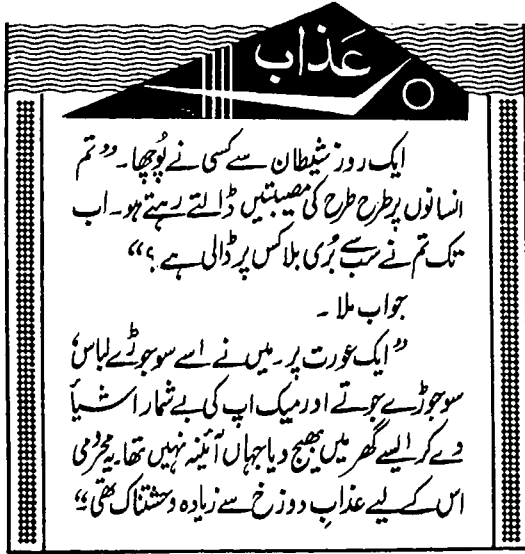 عَذاب
ایک روز شیطان سے کسی نے پُوچھا۔ ”تم
انسانوں پر طرح طرح کی مصیبتیں ڈالتے رہتے ہو۔ اب
تک تم نے سب سے بُری بلا کس پر ڈالی ہے ؟“
جواب ملا ۔
”ایک عورت پر۔ میں نے اسے سو جوڑے لباس،
سو جوڑے جوتے اور میک اپ کی بے شمار اشیأ
دے کر ایسے گھر میں بھیج دیا جہاں آئینہ نہیں تھا۔ یہ محرومی
اس کے لیے عذابِ دوزخ سے زیادہ وحشتناک تھی ۔“